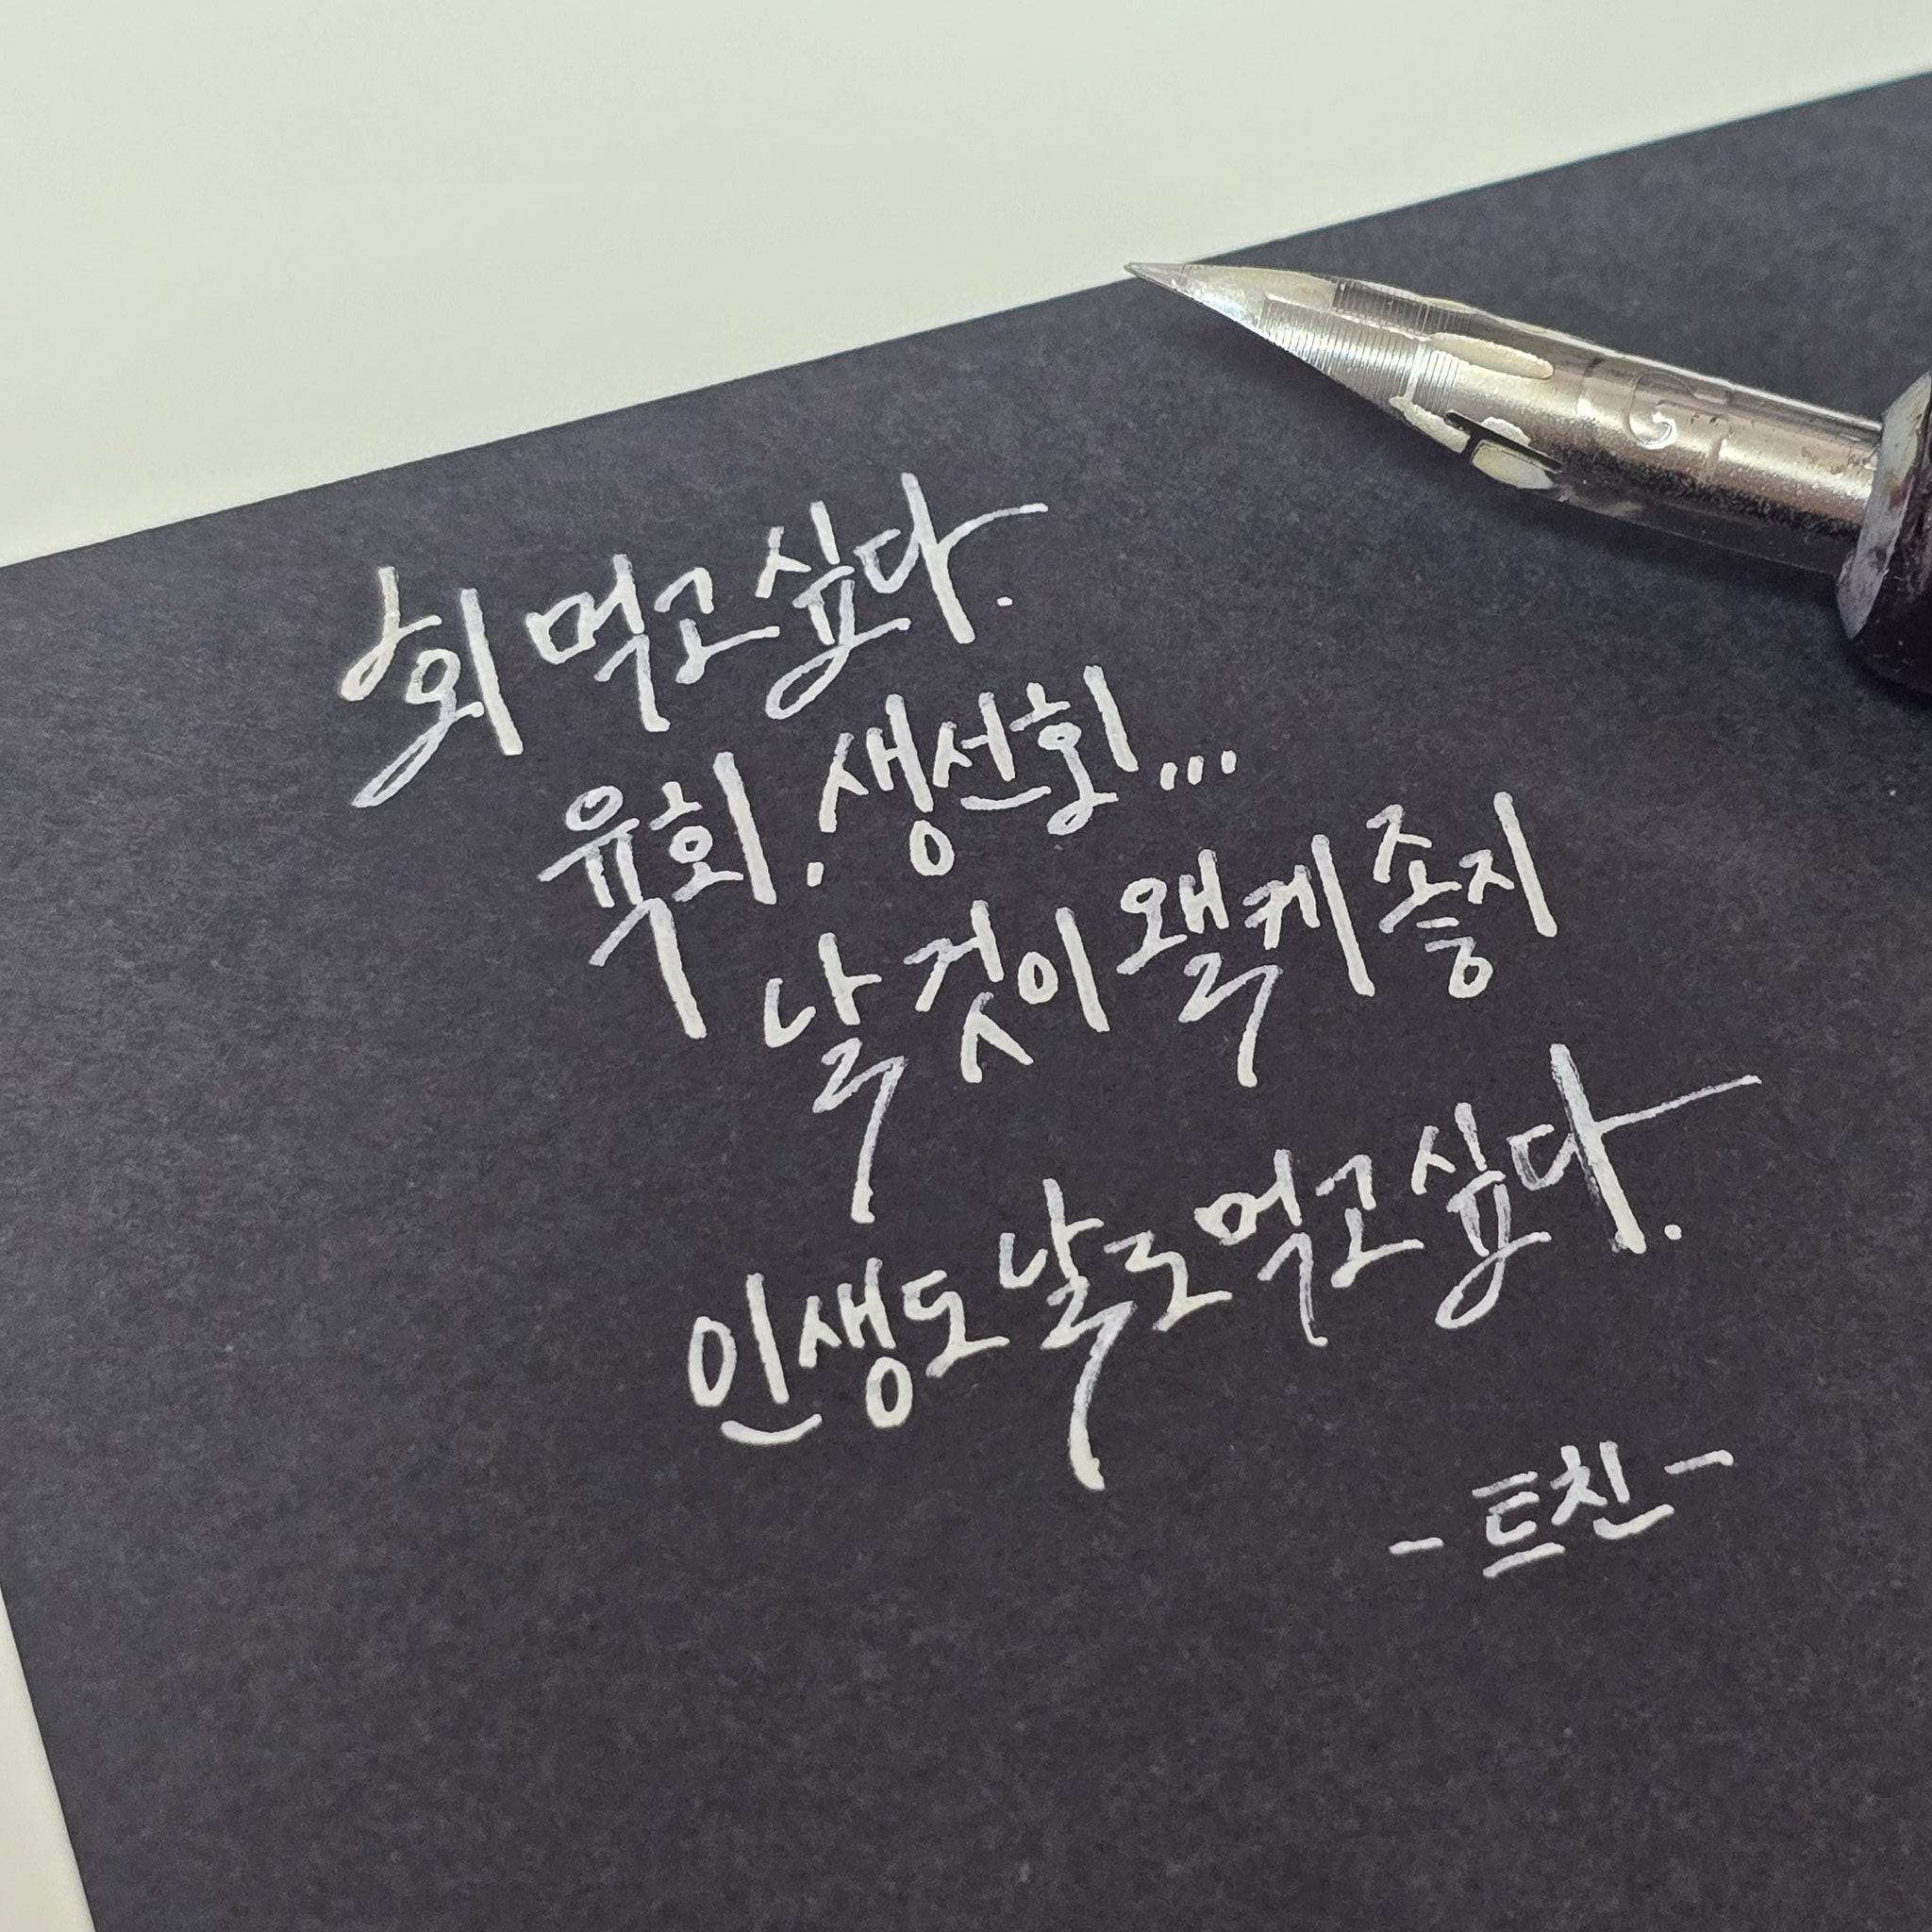 회 먹고싶다.
육회. 생선회...
날 것이 왤케 좋지
인생도 날로 먹고싶다.
- 트친 -
G